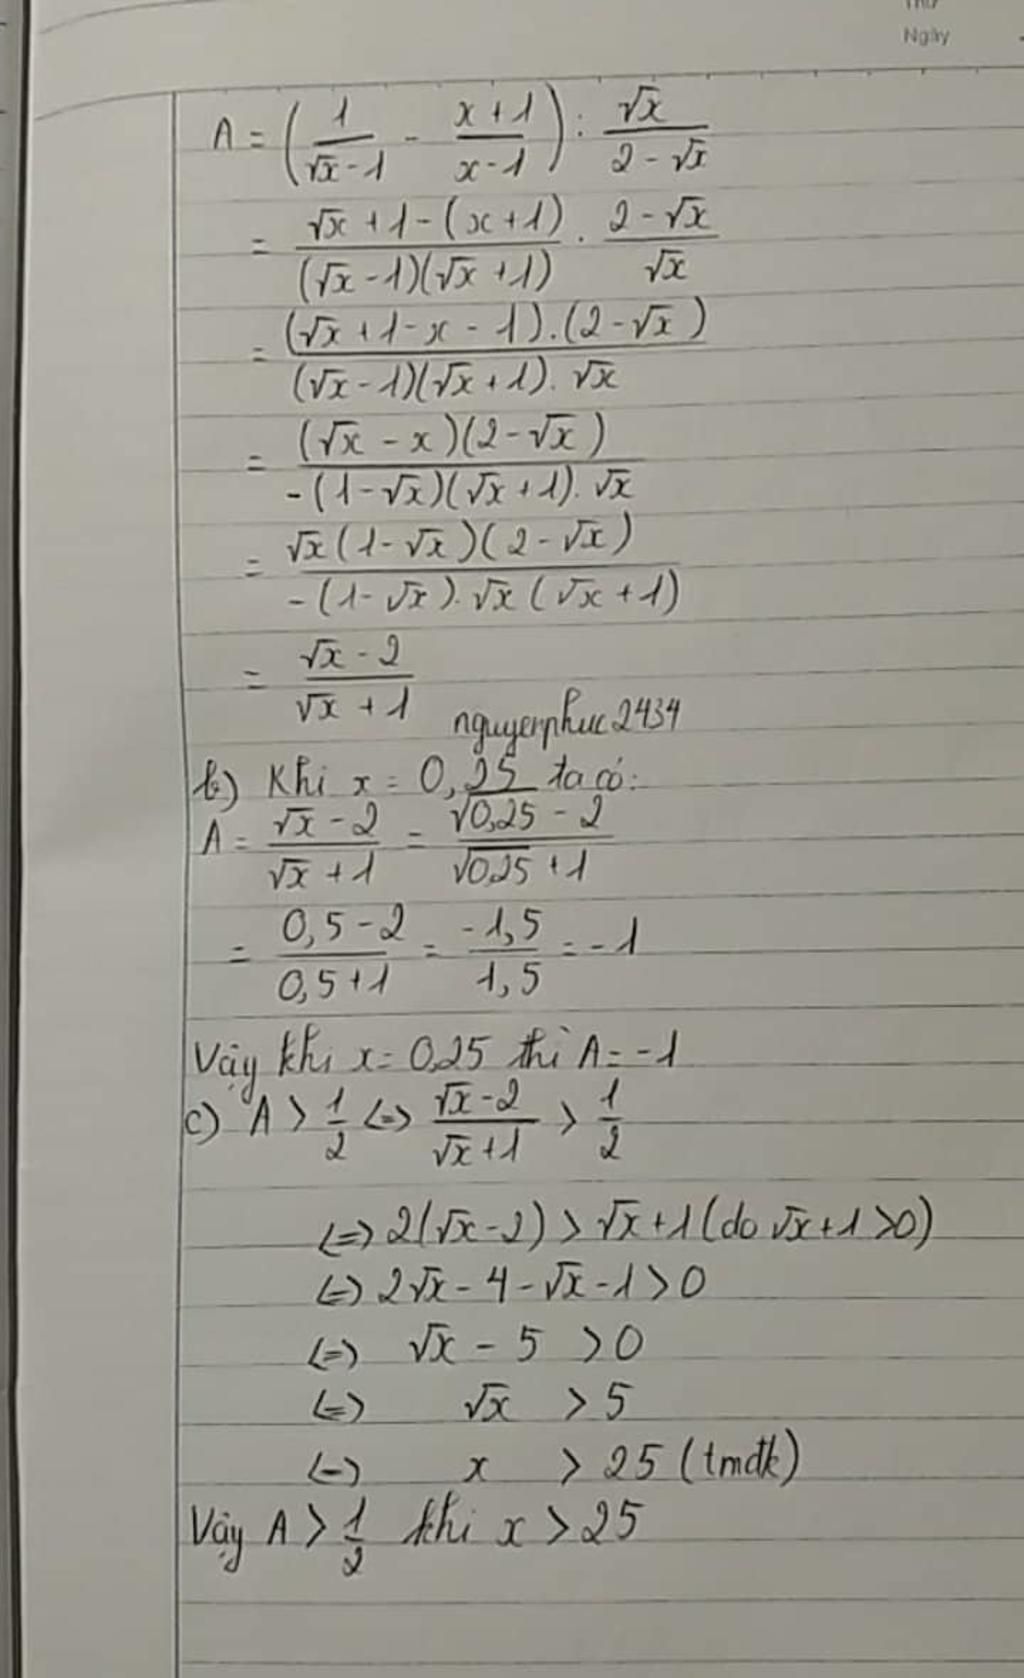 Thứ
Ngày
A = (1/(√x - 1) - (x + 1)/(x - 1)) : √x/(2 - √x)
= (√x + 1 - (x + 1))/((√x - 1)(√x + 1)) . (2 - √x)/√x
= ((√x + 1 - x - 1).(2 - √x))/((√x - 1)(√x + 1). √x)
= ((√x - x)(2 - √x))/(-(1 - √x)(√x + 1). √x)
= (√x(1 - √x)(2 - √x))/(-(1 - √x). √x(√x + 1))
= (√x - 2)/(√x + 1)
nguyenphuc2434
b) Khi x = 0,25 ta có:
A = (√x - 2)/(√x + 1) = (√0,25 - 2)/(√0,25 + 1)
= (0,5 - 2)/(0,5 + 1) = (-1,5)/(1,5) = -1
Vậy khi x = 0,25 thì A = -1
c) A > 1/2 <=> (√x - 2)/(√x + 1) > 1/2
<=> 2(√x - 2) > √x + 1 (do √x + 1 > 0)
<=> 2√x - 4 - √x - 1 > 0
<=> √x - 5 > 0
<=> √x > 5
<=> x > 25 (tmđk)
Vậy A > 1/2 khi x > 25